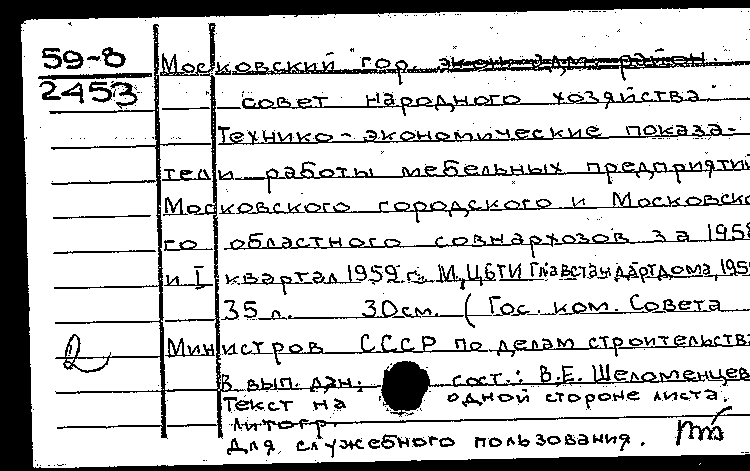 59-8
2453
Московский гор. экон. адм. район.
совет народного хозяйства.
Технико-экономические показа-
тели работы мебельных предприятий
Московского городского и Московско
го областного совнархозов за 1958
и I квартал 1959 г. М, ЦБТИ Главстандартдома, 1959
35 л. 30 см. (Гос. ком. Совета
Министров СССР по делам строительства
В вып. дан.: сост.: В.Е. Шеломенцев
Текст на одной стороне листа.
Литогр.
Для служебного пользования.